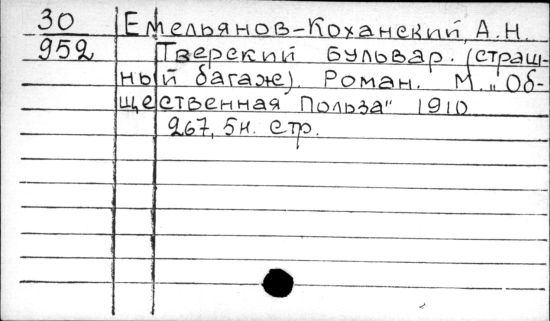 30 Емельянов-Коханский, А.Н.
952 Тверский бульвар. (страш-
ный багаж). Роман. М. „Об-
щественная Польза" 1910
267, 5н. стр.